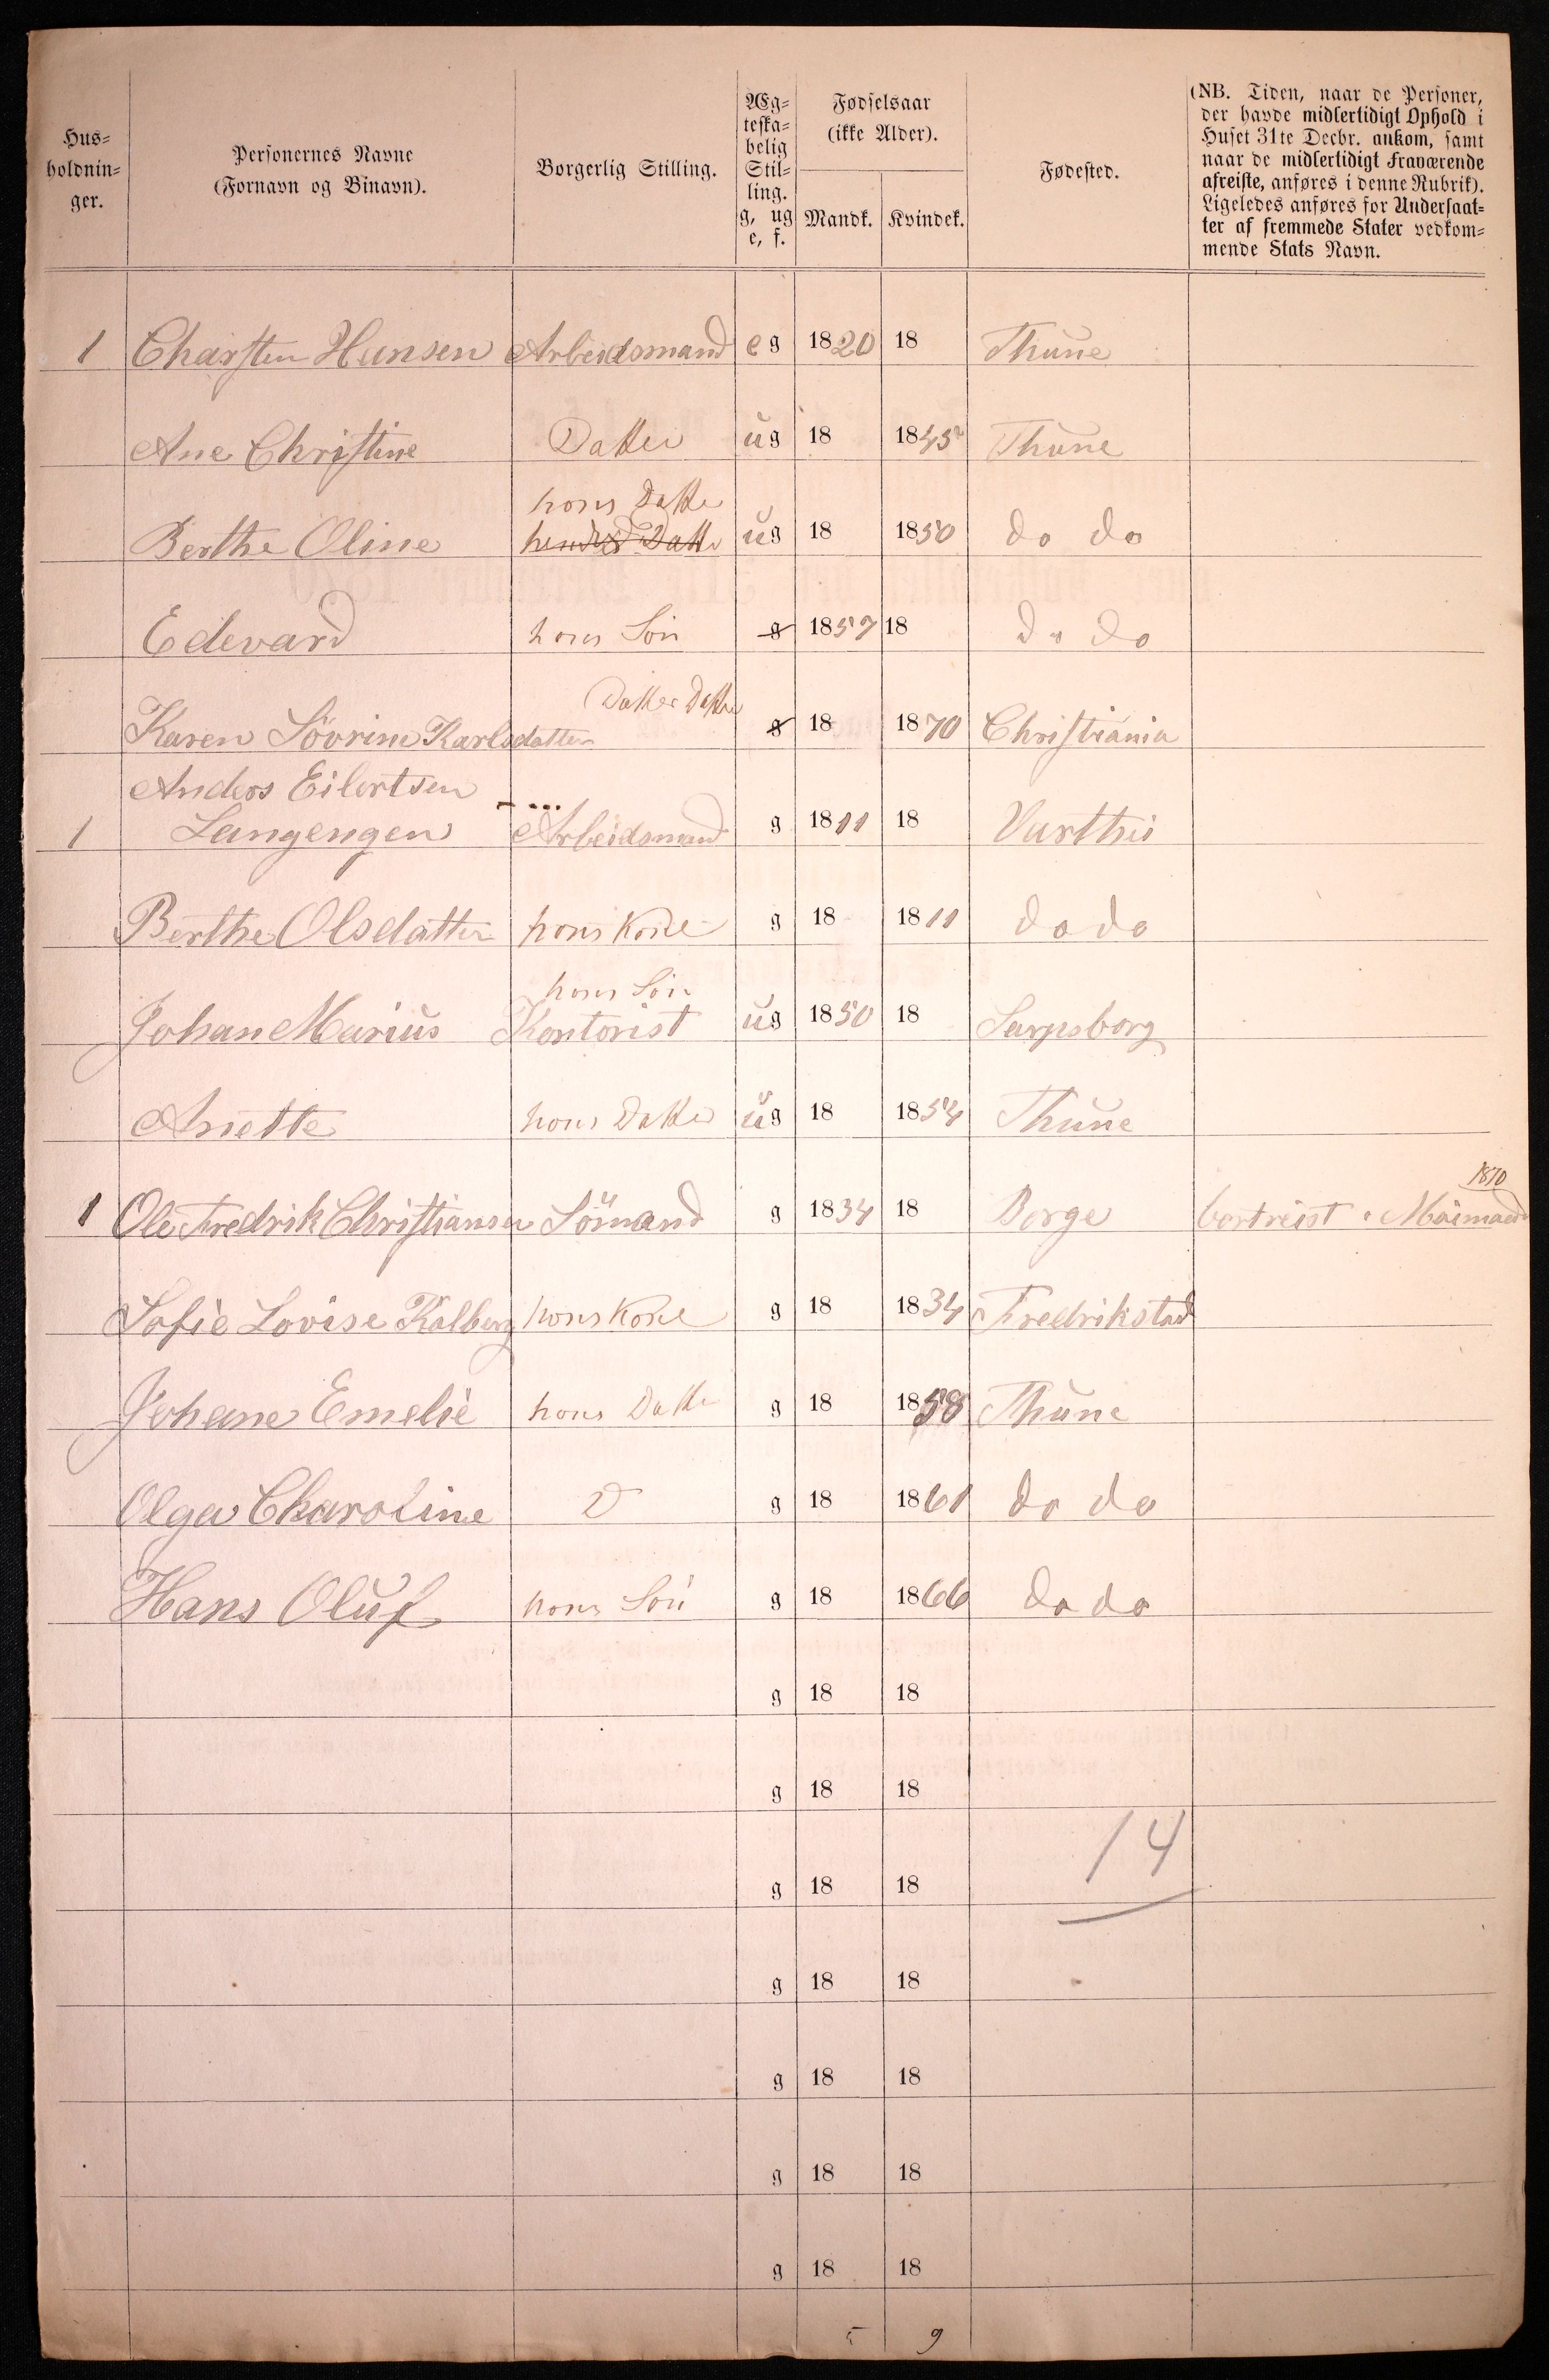 Hus=
holdnin=
ger.
Personernes Navne
(Fornavn og Binavn).
Borgerlig Stilling.
Æg=
teska=
belig
Stil=
ling.
g, ug
e, f.
Fødselsaar
(ikke Alder).
Mandk. Kvindek.
Fødested.
(NB. Tiden, naar de Personer,
der havde midlertidigt Ophold i
Huset 31te Decbr. ankom, samt
naar de midlertidigt fraværende
afreiste, anføres i denne Rubrik).
Ligeledes anføres for Undersaat=
ter af fremmede Stater vedkom=
mende Stats Navn.
1 Charsten Hansen Arbeidsmand e g 1820 18 Thune
Ane Christine Datter ug 18 1845 Thune
hans Datter
Berthe Oline hendes Datter ug 18 1850 do do
Edevard hans Søn g 1857 18 do do
Datter Datter
Karen Sövrine Karlsdatter g 18 1870 Christiania
Anders Eilertsen
1 Langengen Arbeidsmand g 1811 18 Varthei
Berthe Olsdatter hans Kone g 18 1811 do do
hans Søn
Johan Marius Kontorist ug 1850 18 Sarpsborg
Anette hans Datter ug 18 1854 Thune
1870
1 Ole Fredrik Christiansen Sömand g 1834 18 Borge bortreist i Maimaaned
Sofie Lovise Kalberg hans Kone g 18 1834 Fredrikstad
Johane Emelie hans Datter g 18 1858 Thune
Olga Charoline D g 18 1861 do do
Hans Oluf hans Søn g 18 1866 do do
g 18 18
g 18 18
14
g 18 18
g 18 18
g 18 18
g 18 18
g 18 18
5 9